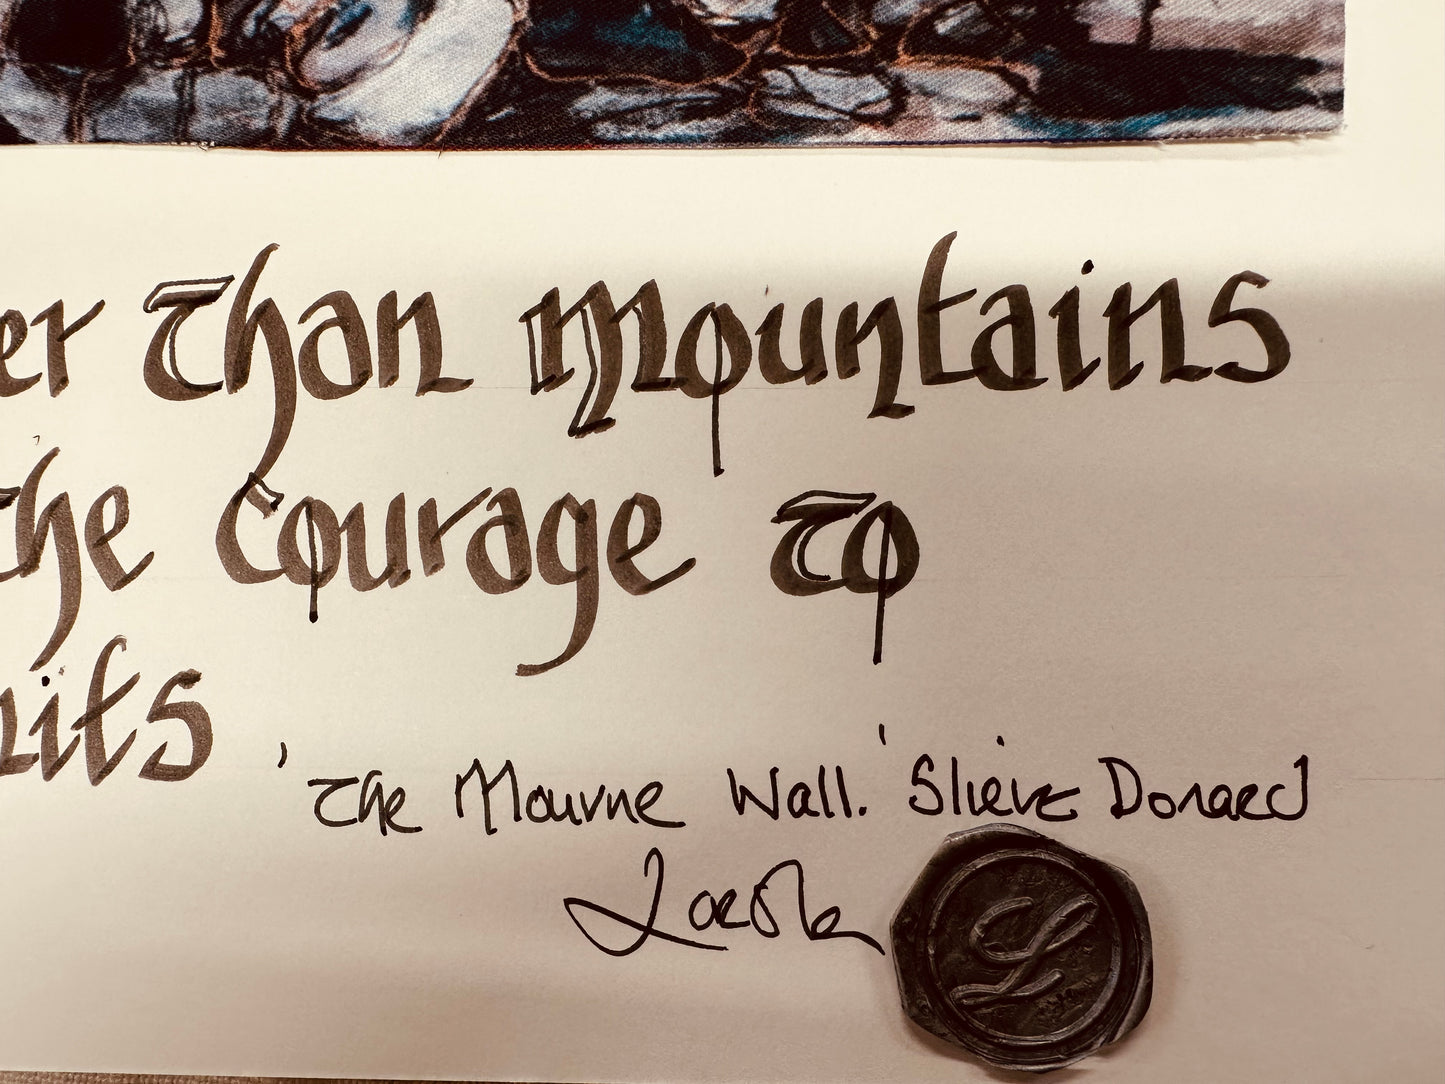 er than mountains
the courage to
nits
'The Mourne Wall.' Slieve Donard
L